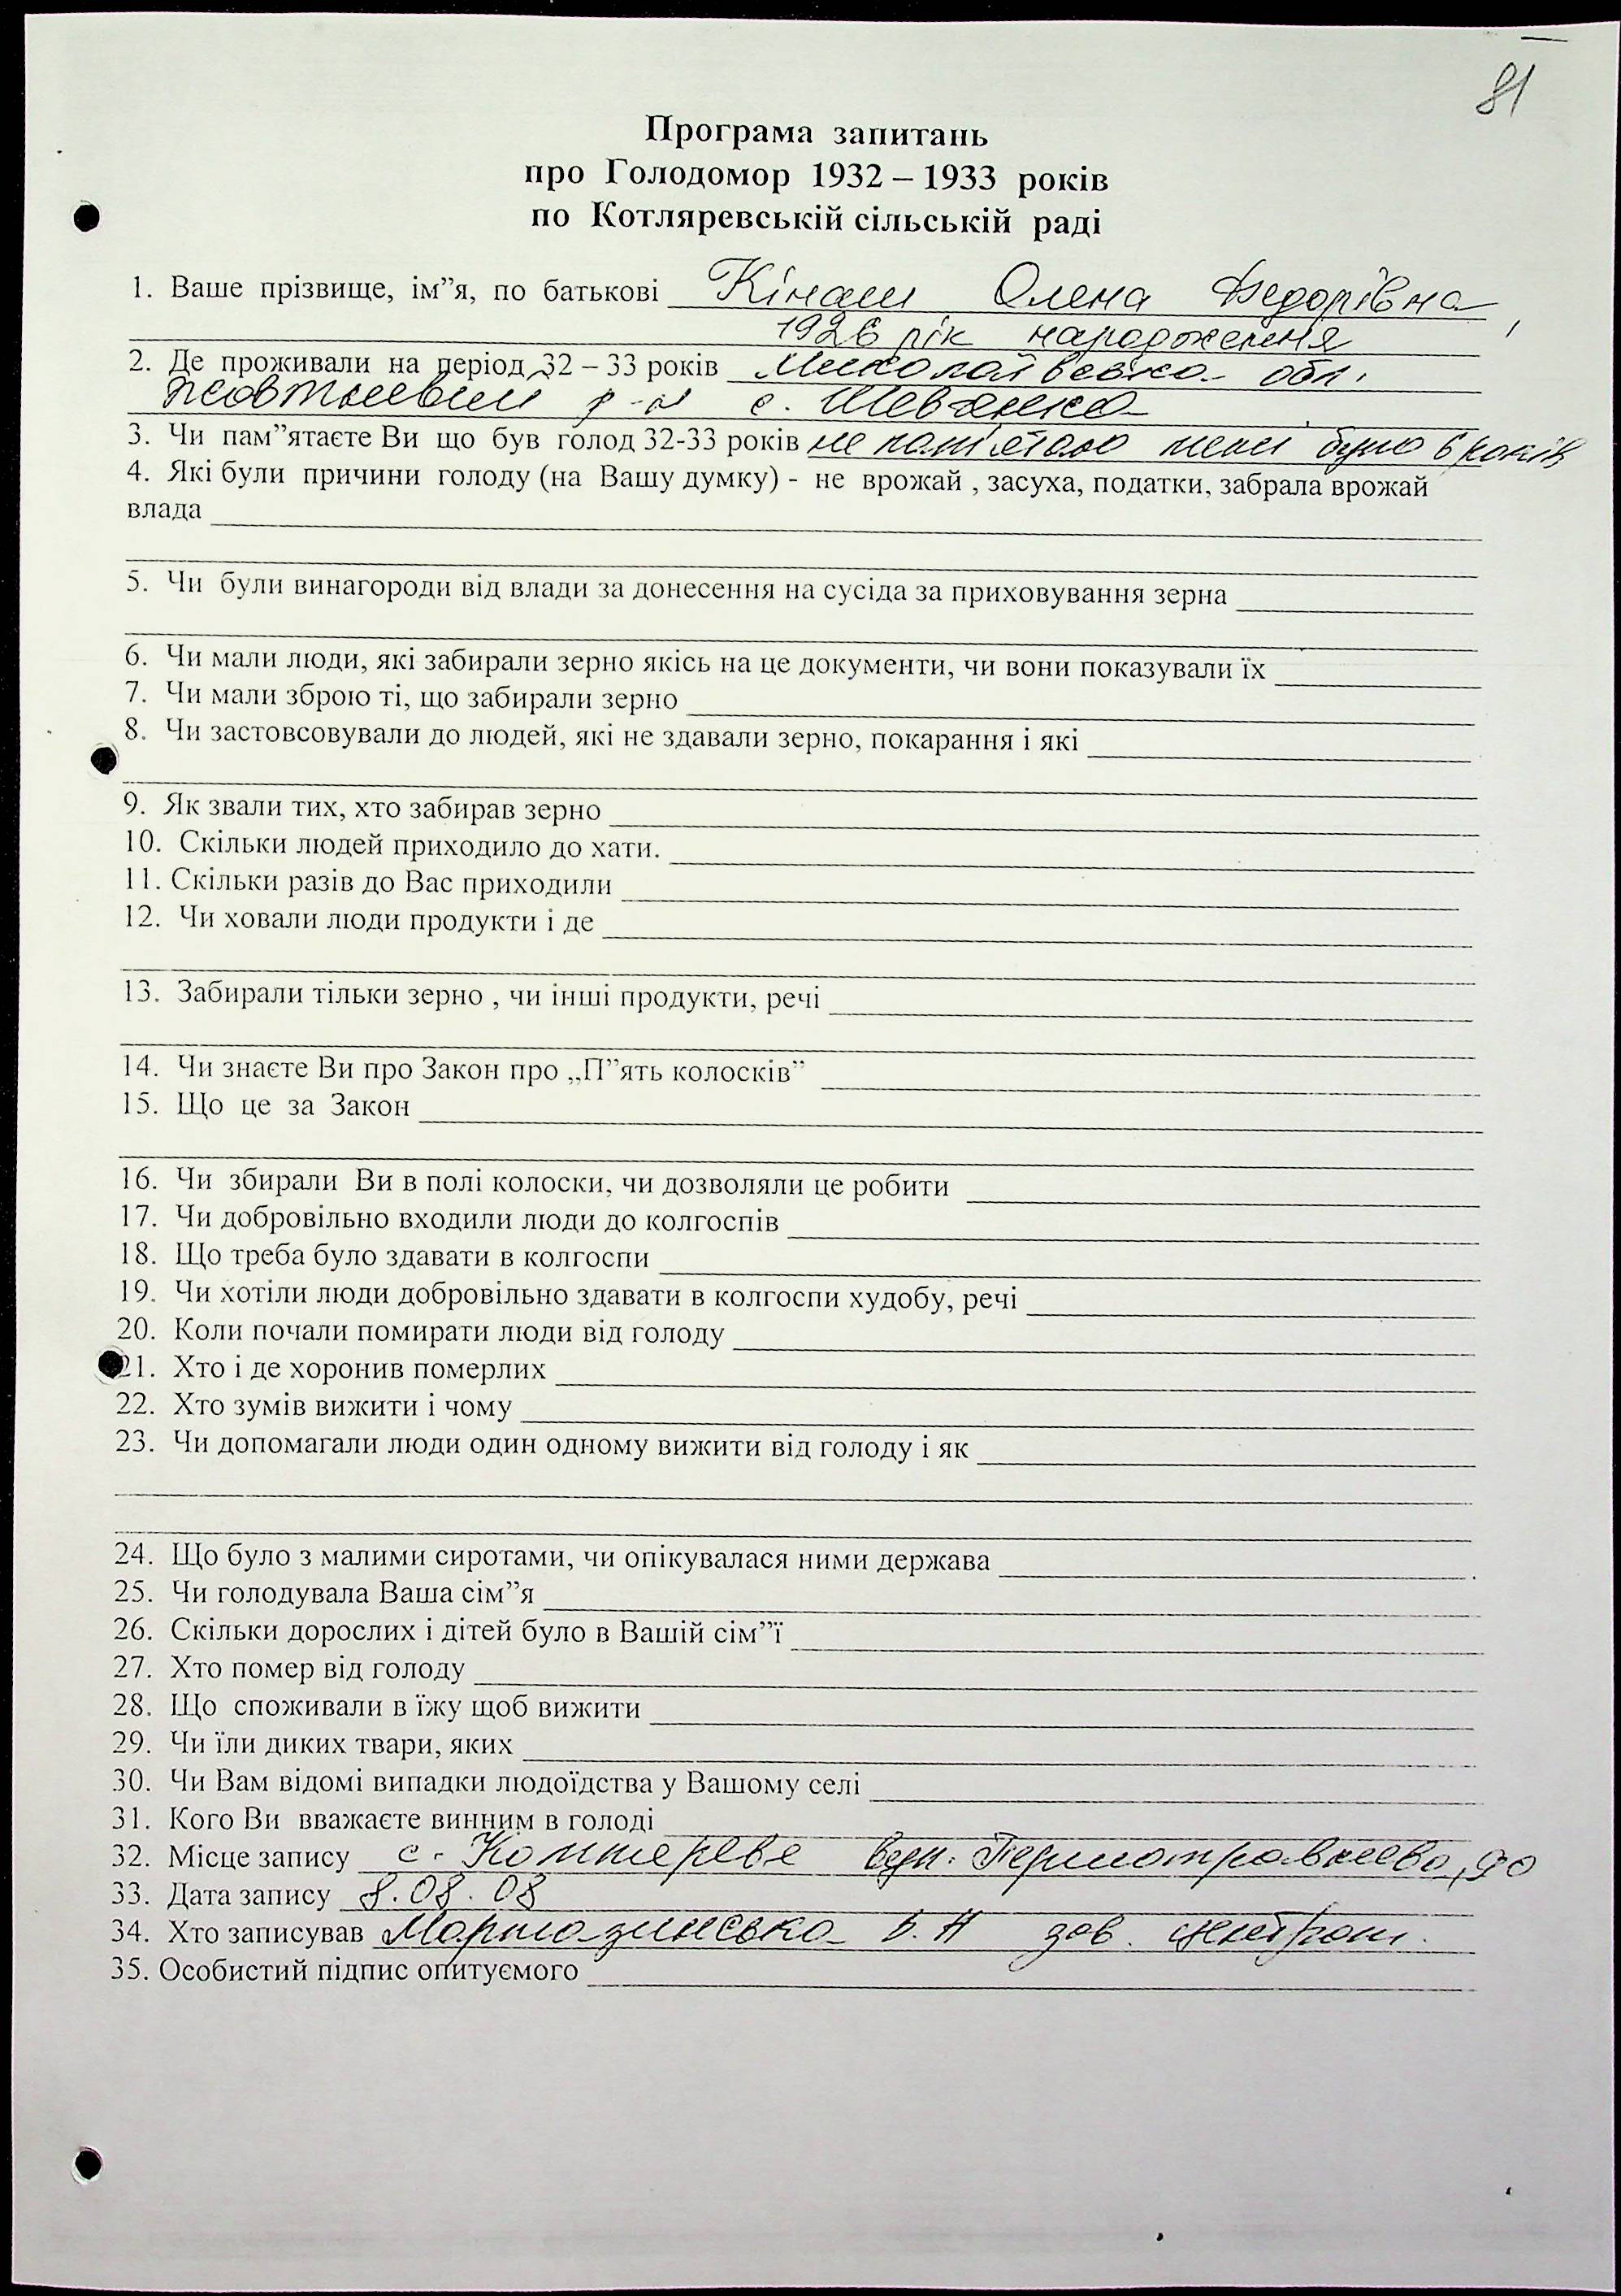 81
Програма запитань
про Голодомор 1932 – 1933 років
по Котляревській сільській раді
1. Ваше прізвище, ім”я, по батькові Кінаш Олена Федорівна,
1926 рік народження
2. Де проживали на період 32 – 33 років Миколаївська обл.
Жовтневий р-н с. Шевченко
3. Чи пам”ятаєте Ви що був голод 32-33 років не пам'ятаю мені було 6 років
4. Які були причини голоду (на Вашу думку) - не врожай , засуха, податки, забрала врожай
влада
5. Чи були винагороди від влади за донесення на сусіда за приховування зерна
6. Чи мали люди, які забирали зерно якісь на це документи, чи вони показували їх
7. Чи мали зброю ті, що забирали зерно
8. Чи застовсовували до людей, які не здавали зерно, покарання і які
9. Як звали тих, хто забирав зерно
10. Скільки людей приходило до хати.
11. Скільки разів до Вас приходили
12. Чи ховали люди продукти і де
13. Забирали тільки зерно , чи інші продукти, речі
14. Чи знаєте Ви про Закон про „П”ять колосків”
15. Що це за Закон
16. Чи збирали Ви в полі колоски, чи дозволяли це робити
17. Чи добровільно входили люди до колгоспів
18. Що треба було здавати в колгоспи
19. Чи хотіли люди добровільно здавати в колгоспи худобу, речі
20. Коли почали помирати люди від голоду
21. Хто і де хоронив померлих
22. Хто зумів вижити і чому
23. Чи допомагали люди один одному вижити від голоду і як
24. Що було з малими сиротами, чи опікувалася ними держава
25. Чи голодувала Ваша сім”я
26. Скільки дорослих і дітей було в Вашій сім”ї
27. Хто помер від голоду
28. Що споживали в їжу щоб вижити
29. Чи їли диких твари, яких
30. Чи Вам відомі випадки людоїдства у Вашому селі
31. Кого Ви вважаєте винним в голоді
32. Місце запису с. Першотравнева, 90
33. Дата запису 8.08.08
34. Хто записував зав.
35. Особистий підпис опитуємого